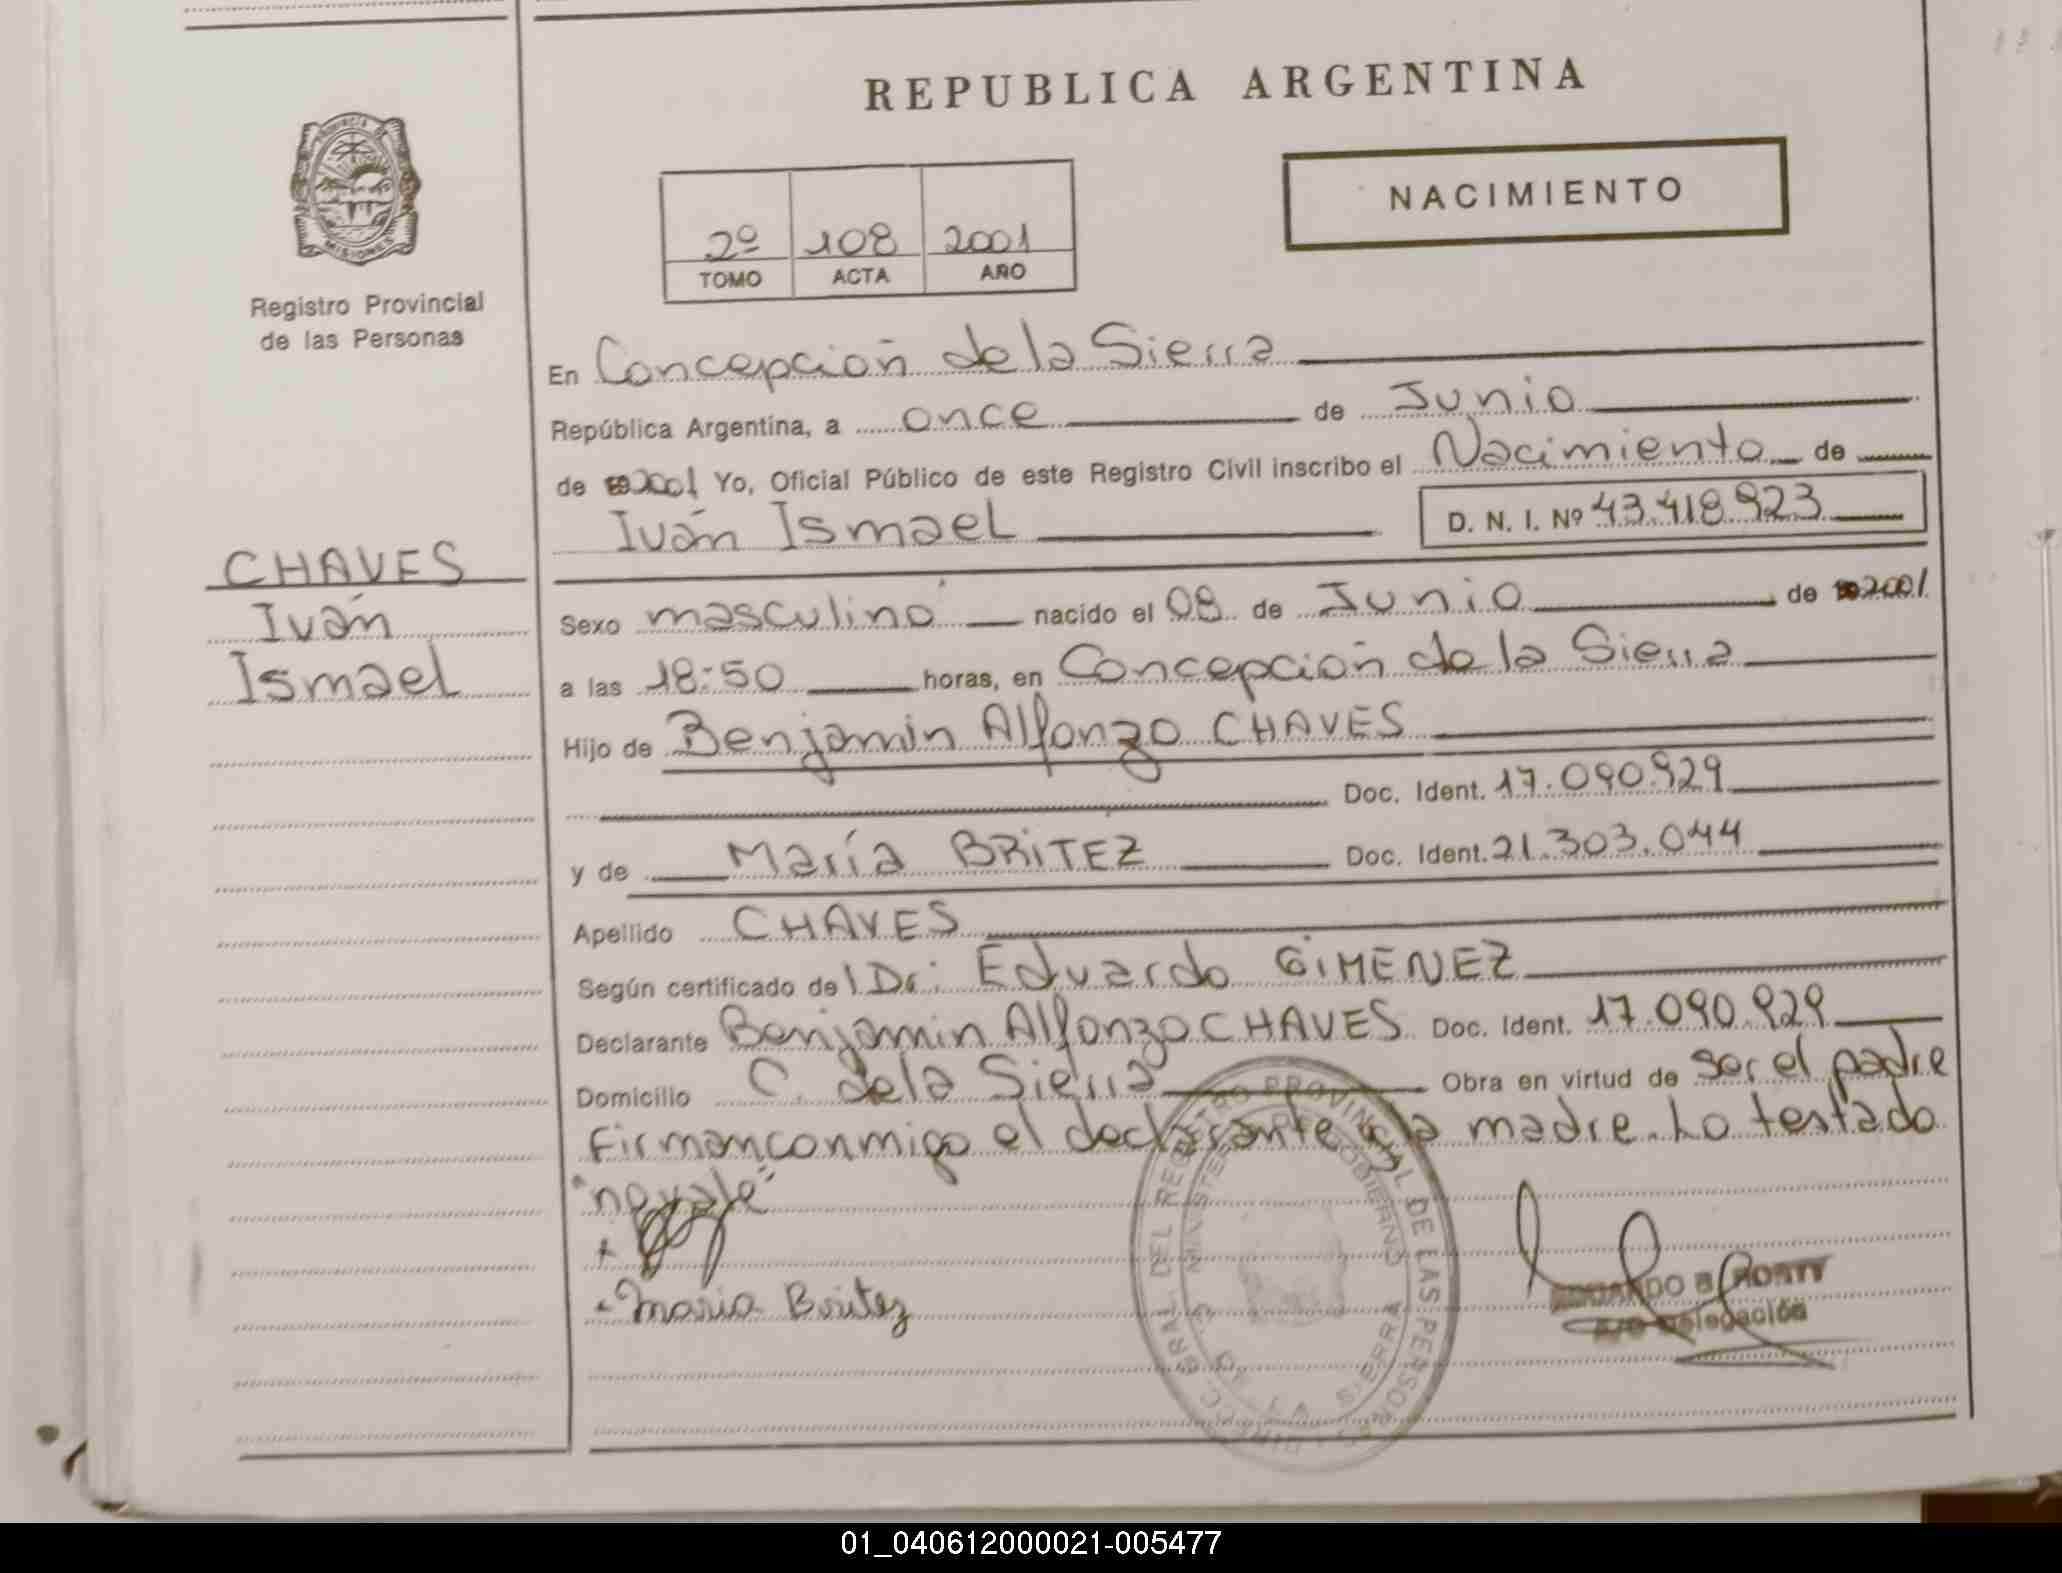 REPUBLICA ARGENTINA
PROVINCIA DE
MISIONES
Registro Provincial
de las Personas
NACIMIENTO
2º 108 2001
TOMO ACTA AÑO
En Concepción de la Sierra
República Argentina, a once de Junio
de 2001 Yo, Oficial Público de este Registro Civil inscribo el Nacimiento de
Iván Ismael D. N. I. Nº 43.418.923
CHAVES
Iván
Ismael
Sexo masculino nacido el 08 de Junio de 2001
a las 18:50 horas, en Concepción de la Sierra
Hijo de Benjamín Alfonzo CHAVES
Doc. Ident. 17.090.929
y de María BRiTEZ Doc. Ident. 21.303.044
Apellido CHAVES
Según certificado de l Dr: Eduardo GiMENEZ
Declarante Benjamin Alfonzo CHAVES Doc. Ident. 17.090.929
Domicilio C. de la Sierra Obra en virtud de ser el padre
Firman conmigo el declarante y la madre. Lo testado
"no vale"
Maria Britez
DIRECC. GRAL. DEL REGISTRO PROVINCIAL DE LAS PERSONAS
LA SIERRA
Delegación
01_040612000021-005477